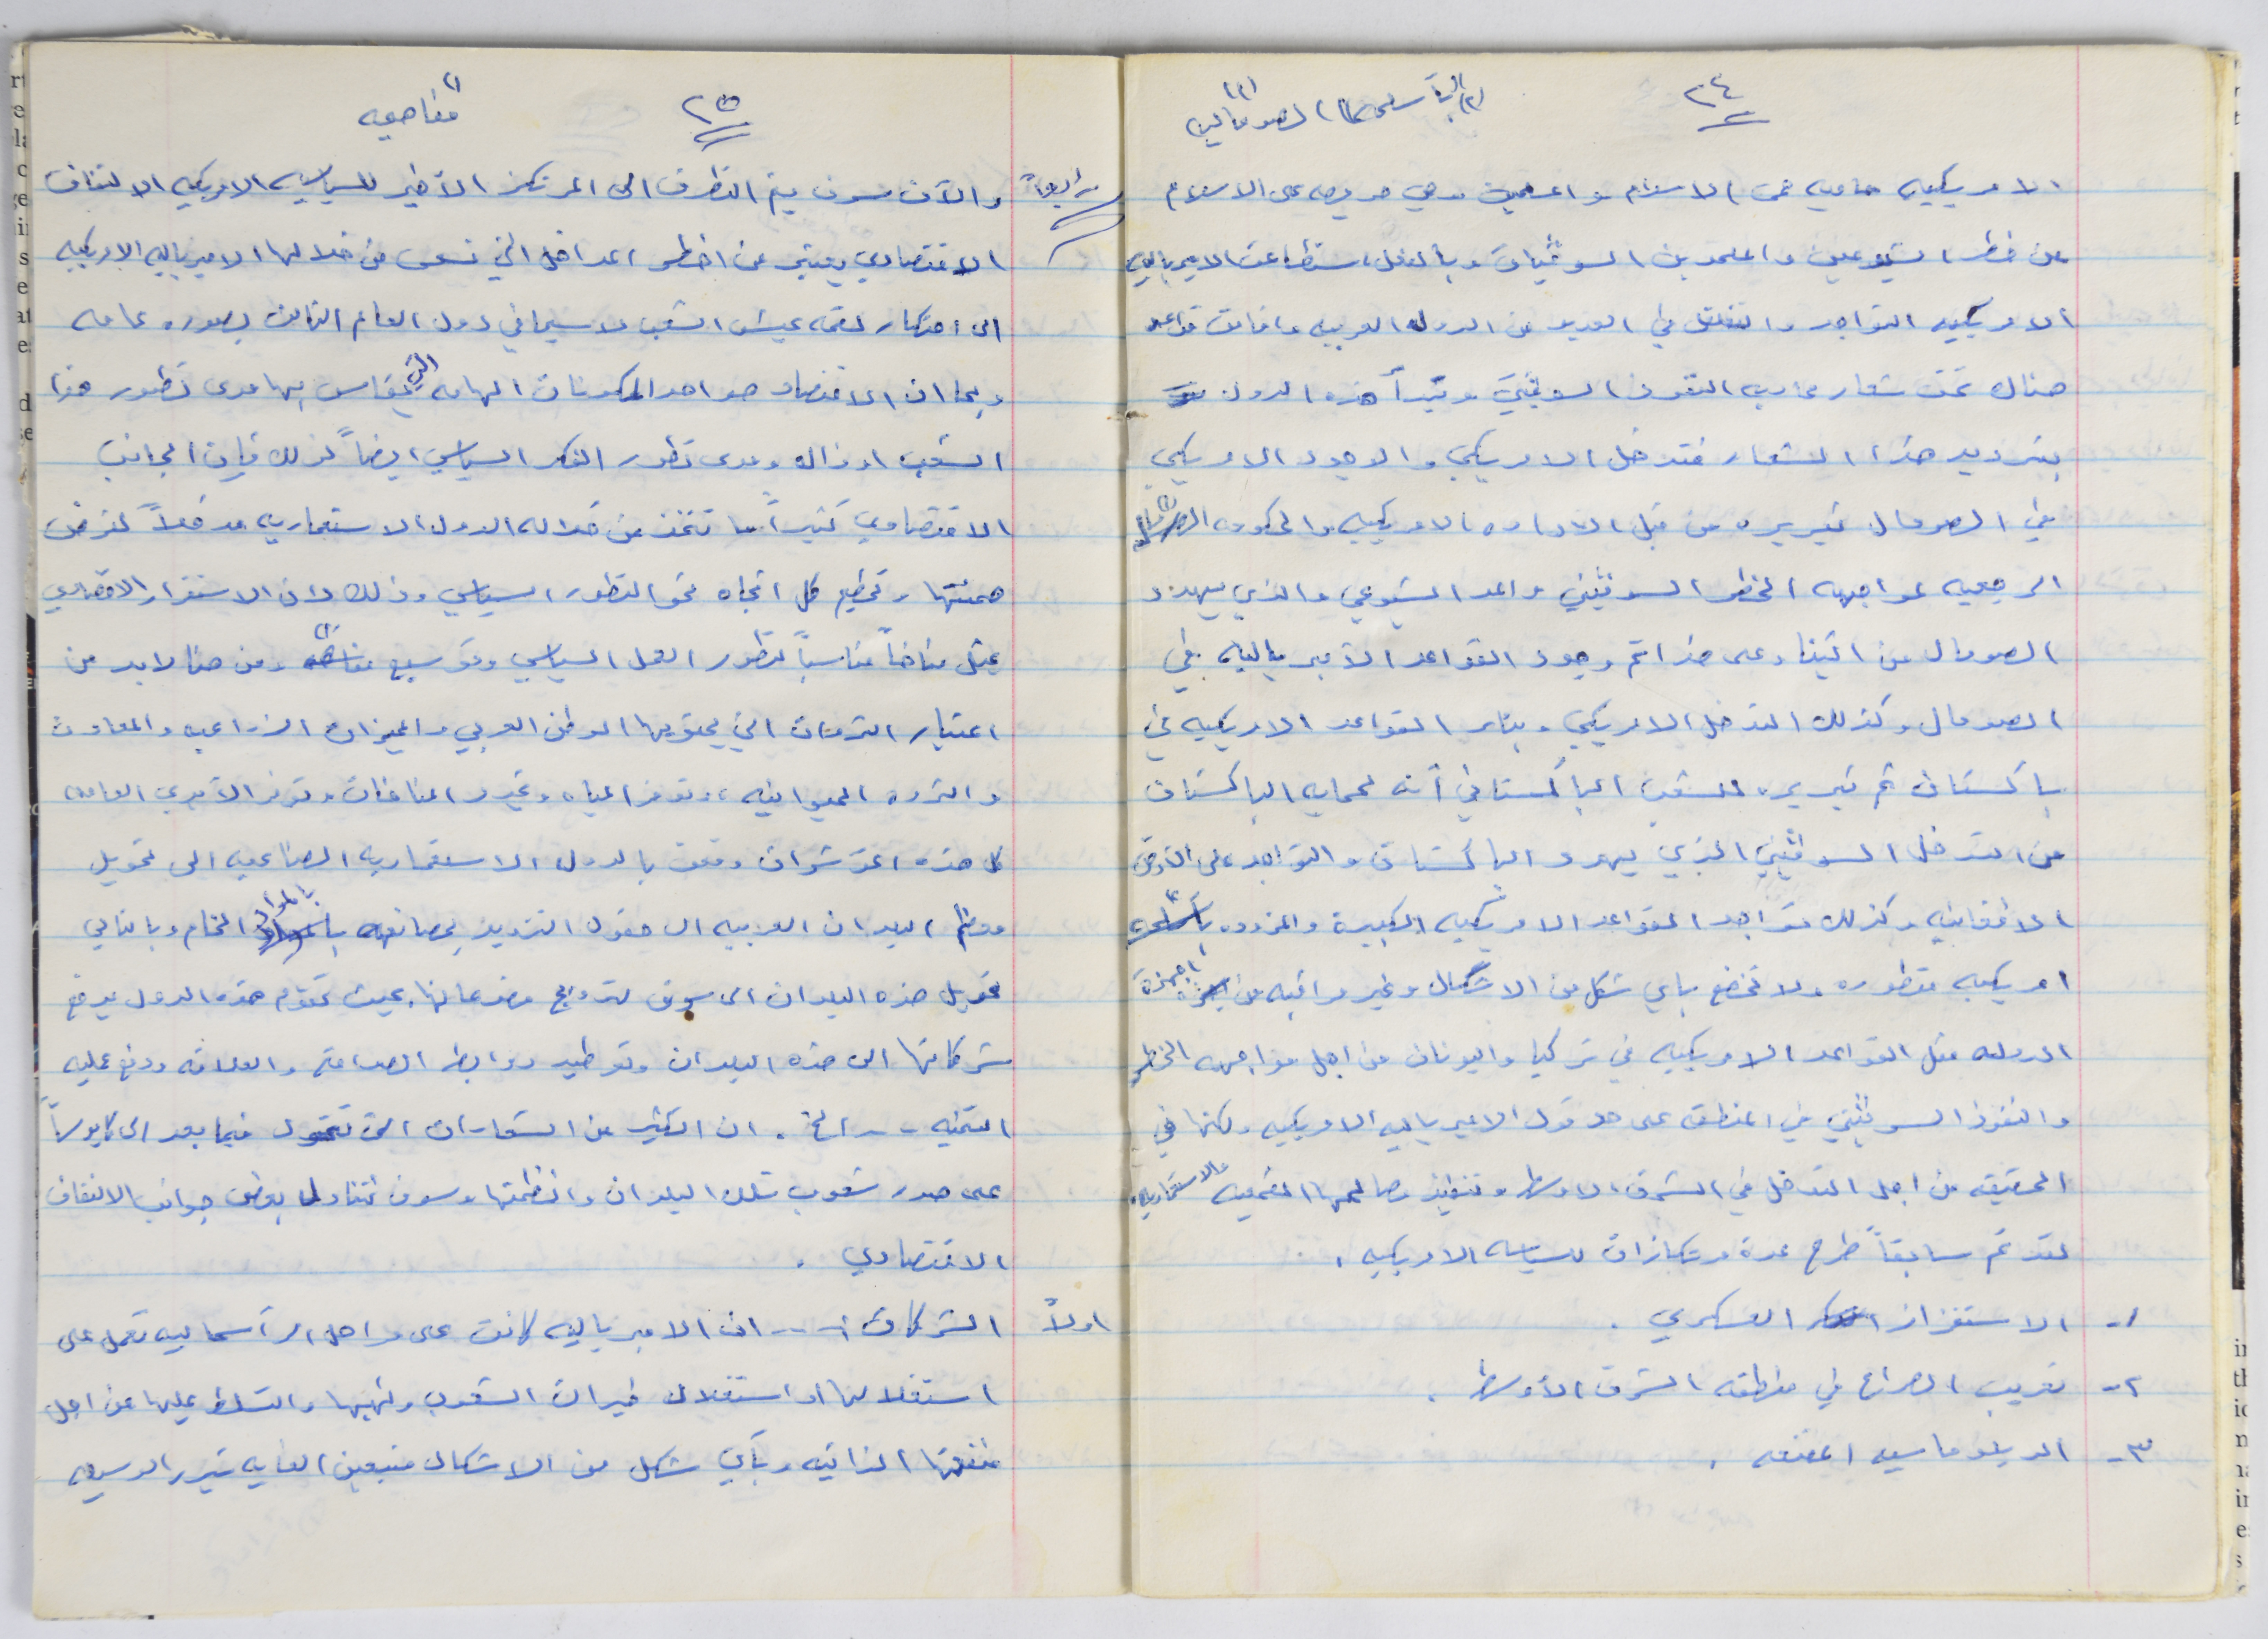 ٢٤
(١) الصومالية
(٢) بأسلحة
الامريكيه حاميه حمى الاسلام والمسلمين وهي حريصه على الاسلام
من خطر الشيوعيين والملحدين السوفيات وبالفعل استطاعت الامبرياليه
الامريكيه التواجد والتغلغل في العديد من الدول العربيه واقامت قواعد
هناك تحت شعار محاربه النفوذ السوفيتي وتبدأ هذه الدول
بترديد هذا الشعار فتدخل الامريكي والوجود الامريكي
في الصومال تبريره من قبل الاداره الامريكيه والحكومه الصوماليه
الرجعيه لمواجهه الخطر السوفيتي والمد الشيوعي والذي يهدد
الصومال من اثيوبيا وعلى هذا تم وجود القواعد الامبرياليه في
الصومال وكذلك التدخل الامريكي وبناء القواعد الامريكيه في
باكستان تم تبريره للشعب الباكستاني أنه لحمايه الباكستان
من التدخل السوفيتي الذي يهدد الباكستان والتواجد على الاراضي
الافغانيه وكذلك تواجد القواعد الامريكيه الكبيرة والمزوده بأسلحه
امريكيه متطوره ولا تخضع باي شكل من الاشكال وغير مراقبه من اجهزة
الدوله مثل القواعد الامريكيه في تركيا واليونان من اجل مواجهه الخطر
والنفوذ السوفيتي في المنطقه على حد قول الامبرياليه الامريكيه ولكنها في
الحقيقه من اجل التدخل في الشرق الاوسط وتنفيذ مصالحها القمعيه والاستعماريه.
لقد تم سابقاً طرح عدة مرتكزات للسياسه الامريكيه.
١- الاستفزاز العسكري.
٢- تعريب الصراع في منطقه الشرق الأوسط.
٣- الدبلوماسيه المقنعه.
٢٥
(١) مفاهيمه
رابعاً والآن سوف يتم التطرق الى المرتكز الأخير للسياسيه الامريكيه الالتفاف
الاقتصادي ويعتبر من اخطر المداخل التي تسعى من خلالها الامبرياليه الامريكيه
الى احتكار لقمه عيش الشعب ولاسيما في دول العالم الثالث بصوره عامه
وبما ان الاقتصاد هو احد المكونات الهامه التي يقاس بها مدى تطور هذا
الشعب او ذاك ومدى تطور الفكر السياسي ايضاً لذلك فإن الجانب
الاقتصادي كثيراً ما تتخذ من خلاله الدول الاستعماريه مدخلاً لفرض
هيمنتها وتحطيم كل اتجاه نحو التطور السياسي وذلك لان الاستقرار الاقتصادي
يمثل مناخاً مناسباً لتطور العمل السياسي وتوسيع مفاهيمه ومن هنا لابد من
اعتبار الثروات التي يحتويها الوطن العربي والميزات الزراعيه والمعادن
والثروه الحيوانيه، وتوفر المياه وتعدد المناخات وتوفر الأيدي العامله
كل هذه المؤشرات دفعت بالدول الاستعماريه الصناعيه الى تحويل
معظم البلدان العربيه الى حقول التزويد لمصانعها بالمواد الخام وبالتالي
تحويل هذه البلدان الى سوق لترويج مصنوعاتها بحيث تقوم هذه الدول بدفع
شركاتها الى هذه البلدان وتوطيد روابط الصداقه والعلاقه ودفع عمليه
التنميه .. الخ. ان الكثير من الشعارات التي تتحول فيما بعد الى كابوساً
على صدر شعوب تلك البلدان وانظمتها وسوف نتناول بعض جوانب الالتفاف
الاقتصادي.
اولاً الشركات :- ان الامبرياليه كانت على مراحل الرأسماليه تعمل على
استغلالها او استغلال خيرات الشعوب ونهبها والتسلط عليها من اجل
منفعتها الذاتيه وبأي شكل من الاشكال متبعين الغايه تبرر الوسيله